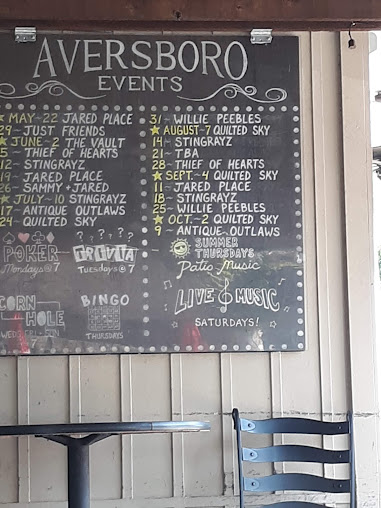 AVERSBORO
EVENTS
★ MAY~22 JARED PLACE
29~ JUST FRIENDS
★ JUNE~2 THE VAULT
5~ THIEF OF HEARTS
12~ STINGRAYZ
19~ JARED PLACE
26~ SAMMY + JARED
★ JULY~10 STINGRAYZ
17~ ANTIQUE OUTLAWS
24~ QUILTED SKY
31~ WILLIE PEEBLES
★ AUGUST~7 QUILTED SKY
14~ STINGRAYZ
21~ TBA
28~ THIEF OF HEARTS
★ SEPT.~4 QUILTED SKY
11~ JARED PLACE
18~ STINGRAYZ
25~ WILLIE PEEBLES
★ OCT.~2 QUILTED SKY
9~ ANTIQUE OUTLAWS
POKER
Mondays@7
? ? ? ? ? ?
TRIVIA
TUESDAYS@7
CORN
HOLE
BINGO
THURSDAYS
SUMMER
THURSDAYS
Patio Music
LIVE MUSIC
SATURDAYS!